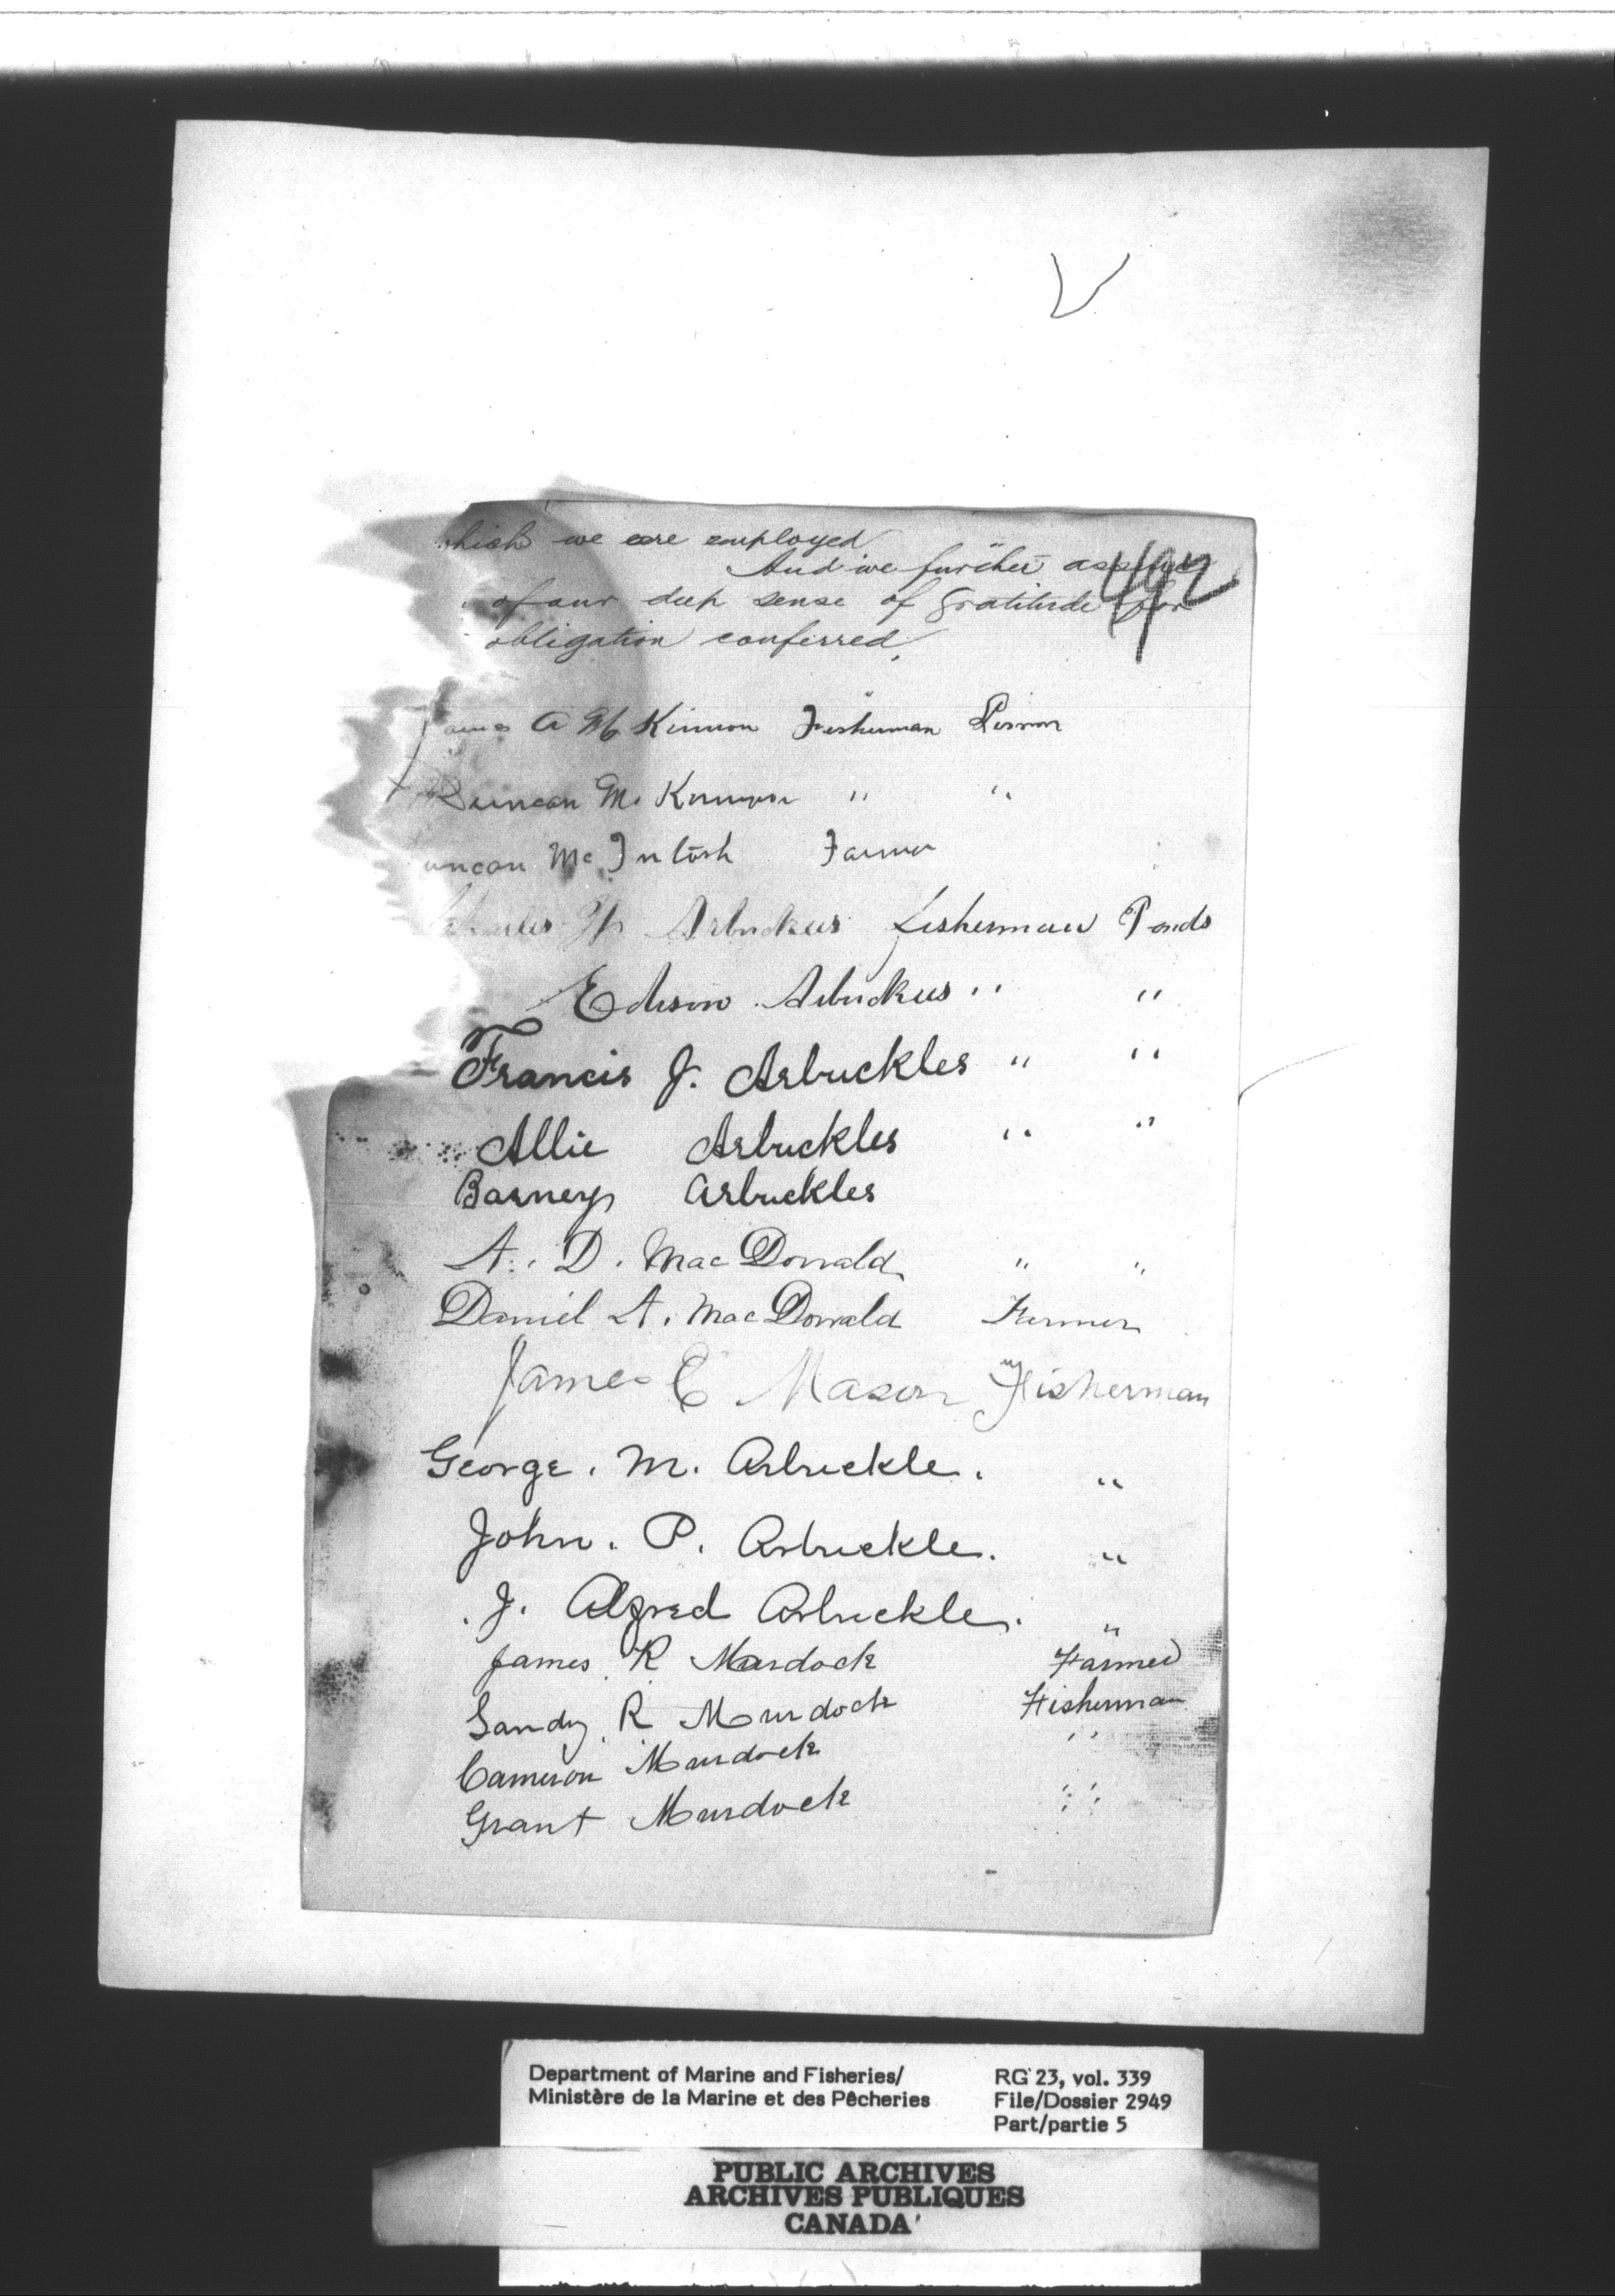 which we are employed
And we further assure
of our deep sense of gratitude for
obligation conferred.
492
James A McKinnon Fisherman
Duncan McKinnon " "
uncan McIntosh Farmer
Charles Arbuckles Fisherman Ponds
Edison Arbuckles " "
Francis J. Arbuckles " "
Allie Arbuckles " "
Barney Arbuckles
A. D. MacDonald " "
Daniel A. MacDonald Farmer
James C Mason Fisherman
George. M. Arbuckle. "
John. P. Arbuckle. "
J. Alfred Arbuckle. "
James R Murdock Farmer
Sandy R Murdock Fisherman
Cameron Murdock "
Grant Murdock "
Department of Marine and Fisheries/
Ministère de la Marine et des Pêcheries
RG 23, vol. 339
File/Dossier 2949
Part/partie 5
PUBLIC ARCHIVES
ARCHIVES PUBLIQUES
CANADA